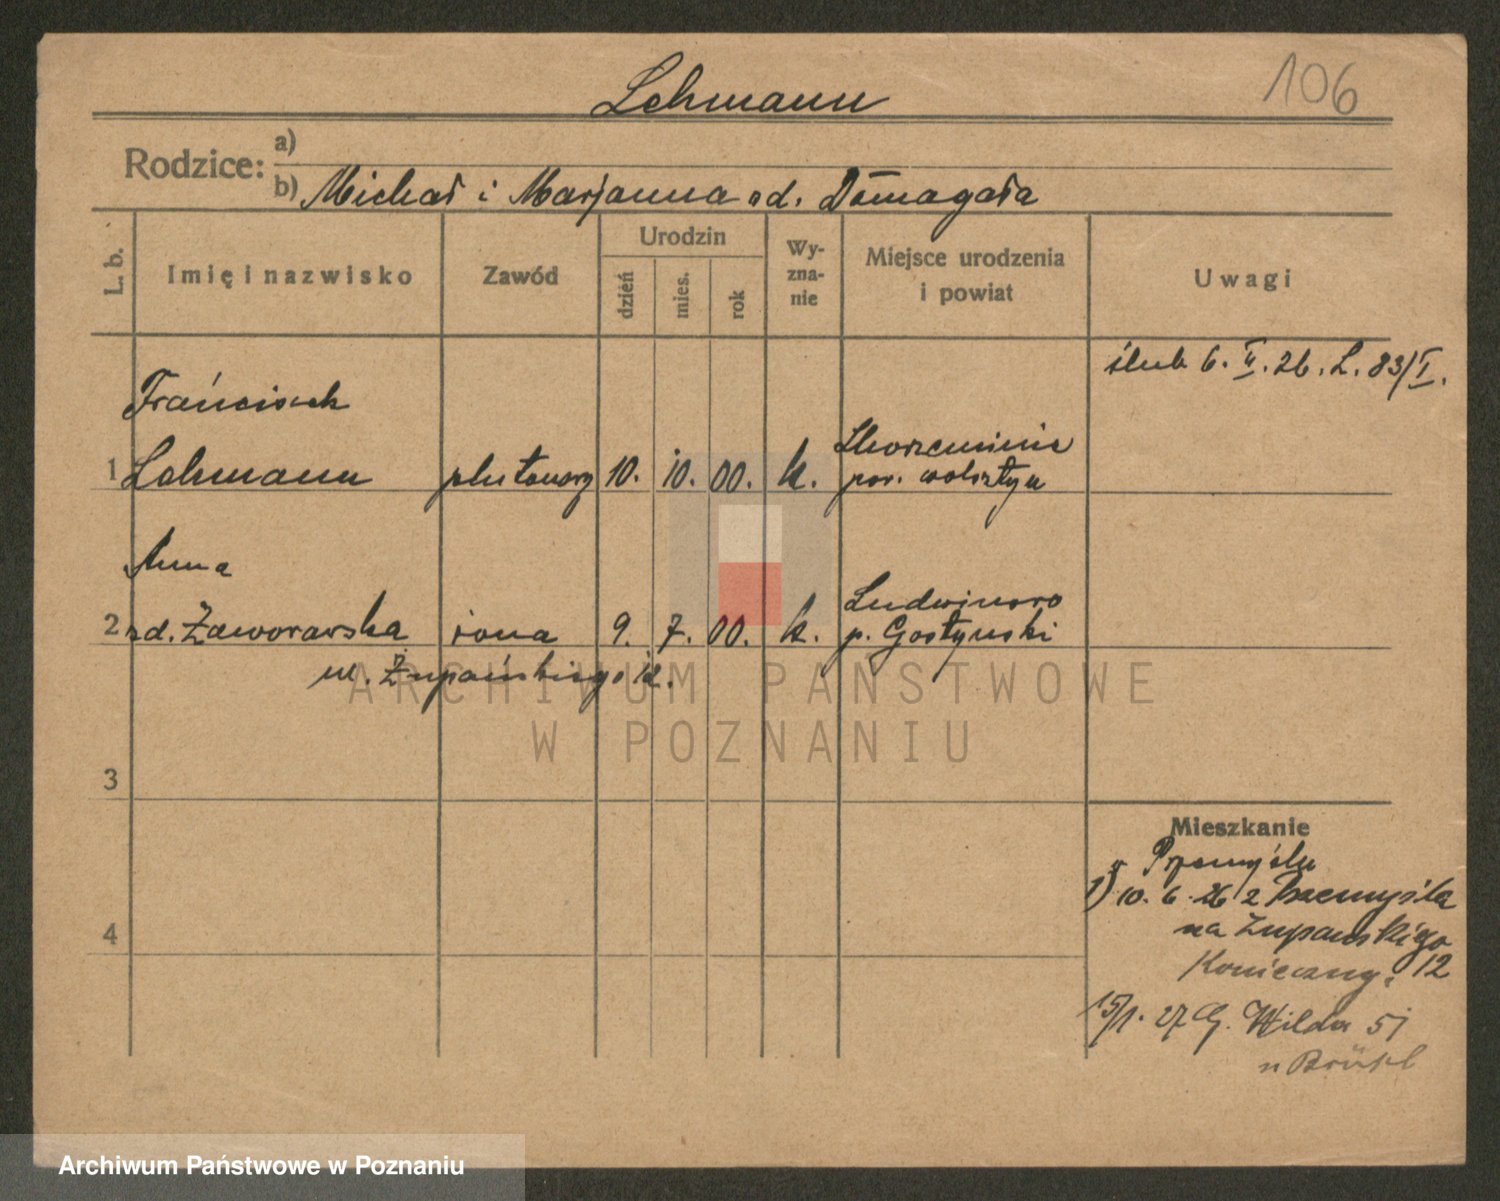 Lehmann
106
Rodzice:
a)
b) Michał i Marjanna od. Domagała
L. b.
Imię i nazwisko
Zawód
Urodzin
dzień
mies.
rok
Wy-
zna-
nie
Miejsce urodzenia
i powiat
Uwagi
ślub 6. II. 26. L. 83/I.
Franciszek
1 Lehmann plutonowy 10. 10. 00. k. Chorzemin
pow. wolsztyn
Anna
2 zd. Zaworarska żona 9. 7. 00. k. Ludwinowo
p. Gostyński
ul. Żupańskiego 12.
3
4
Mieszkanie
Przemyśla
1) 10. 6. 26 z Przemyśla
na Żupańskiego
Konieczny. 12
15/1. 27 G. Wilda 51
u
ARCHIWUM PAŃSTWOWE
W POZNANIU
Archiwum Państwowe w Poznaniu